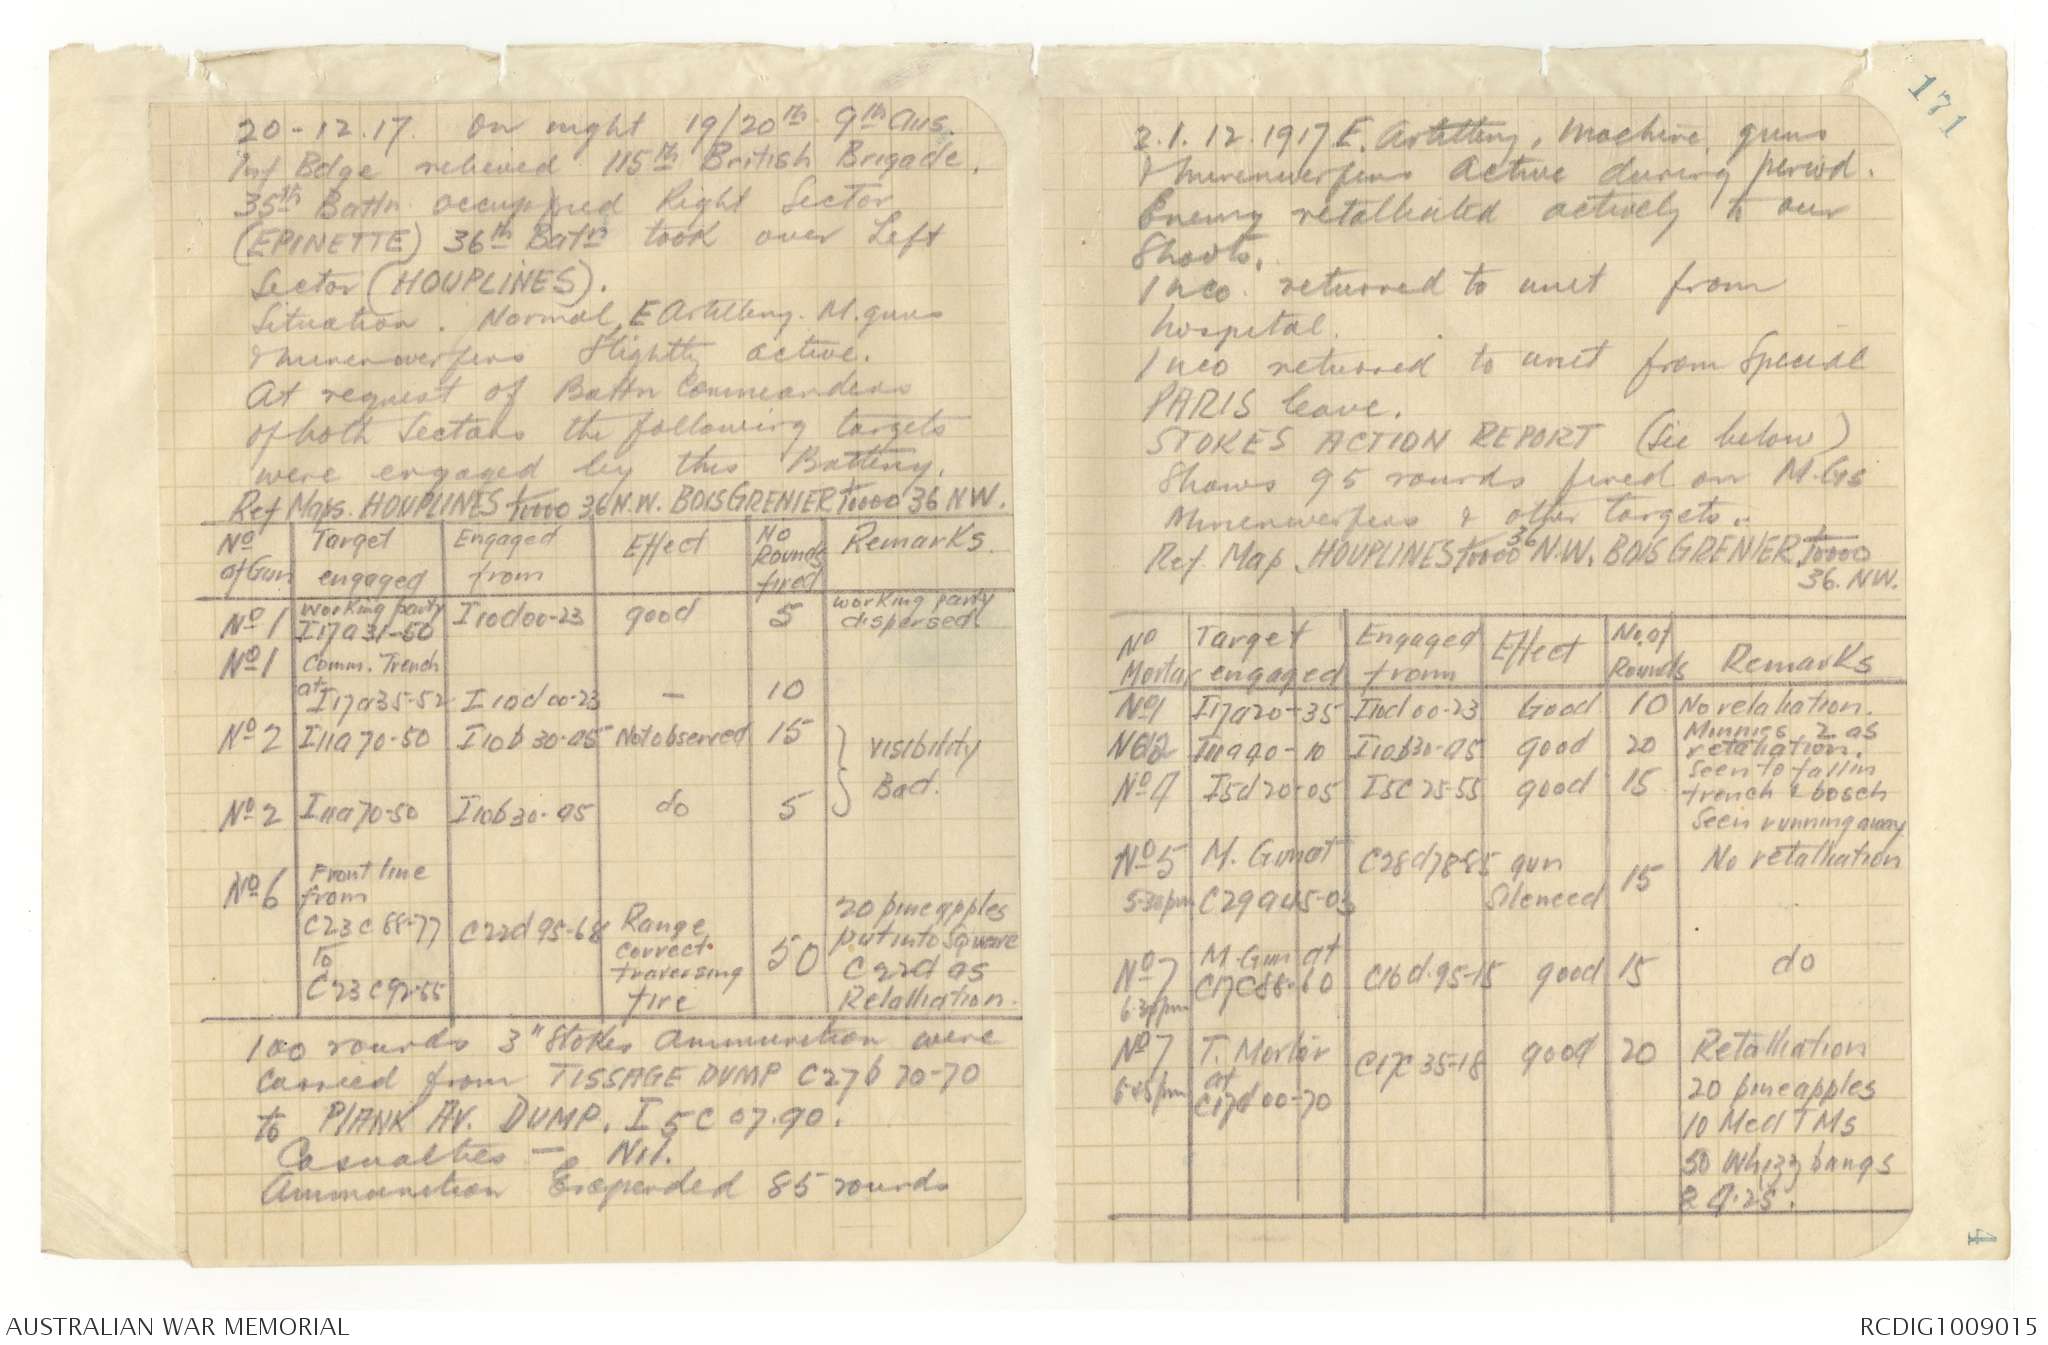 20-12.17. On night 19/20th 9th Aus.
Inf Bdge relieved 115th British Brigade.
35th Battn occupied Right Sector
(EPINETTE) 36th Batn took over Left
Sector (HOUPLINES).
Situation. Normal, E Artillery. M. guns
& minenwerfers Slightly active.
At request of Battn Commanders
of both Sectors the following targets
were engaged by this Battery.
Ref Maps. HOUPLINES 1/10000 36 N.W. BOIS GRENIER 1/10000 36 NW.
No of Gun | Target engaged | Engaged from | Effect | No Rounds fired | Remarks.
No 1 | Working party I17a31-50 | I10d00-23 | good | 5 | working party dispersed.
No 1 | Comm. Trench at I17a35-52 | I10d00-23 | — | 10
No 2 | I11a70-50 | I10b30-95 | Not observed | 15 | } visibility
No 2 | I11a70-50 | I10b30-95 | do | 5 | } Bad.
No 6 | Front line from C23c88-77 to C23c92-55 | C22d95-68 | Range correct. traversing fire | 50 | 20 pineapples put into Square C22d as Retalliation.
100 rounds 3" Stokes Ammunition were
carried from TISSAGE DUMP C27b70-70
to PLANK AV. DUMP. I5C07.90.
Casualties — Nil.
Ammunition Expended 85 rounds
171
21.12.1917 E. Artillery, Machine guns
& minenwerfers active during period.
Enemy retalliated actively to our
Shoots.
1 nco. returned to unit from
hospital.
1 nco returned to unit from Special
PARIS leave.
STOKES ACTION REPORT (See below)
Shows 95 rounds fired on M.Gs
Minenwerfers & other targets.
Ref. Map. HOUPLINES 1/10000 36 N.W. BOIS GRENIER. 1/10000
36. NW.
No Mortar | Target engaged | Engaged from | Effect | No. of Rounds | Remarks
No 1 | I17a20-35 | I10d00-23 | Good | 10 | No retaliation.
No 2 | I11a40-10 | I10b30-95 | good | 20 | Minnies 2 as retaliation.
No 4 | I5d20-05 | I5C25-55 | good | 15 | Seen to fall in trench & bosch Seen running away
No 5 5-30pm | M. Gun at C29a45-03 | C28d78-85 | gun Silenced | 15 | No retalliation
No 7 6.30pm | M. Gun at C17C88-60 | C16d.95-15 | good | 15 | do
No 7 6.45pm | T. Mortar at C17d00-70 | C17C35-18 | good | 20 | Retalliation
20 pineapples
10 Med TMs
50 Whizz bangs
& 4.2s.
4
AUSTRALIAN WAR MEMORIAL
RCDIG1009015